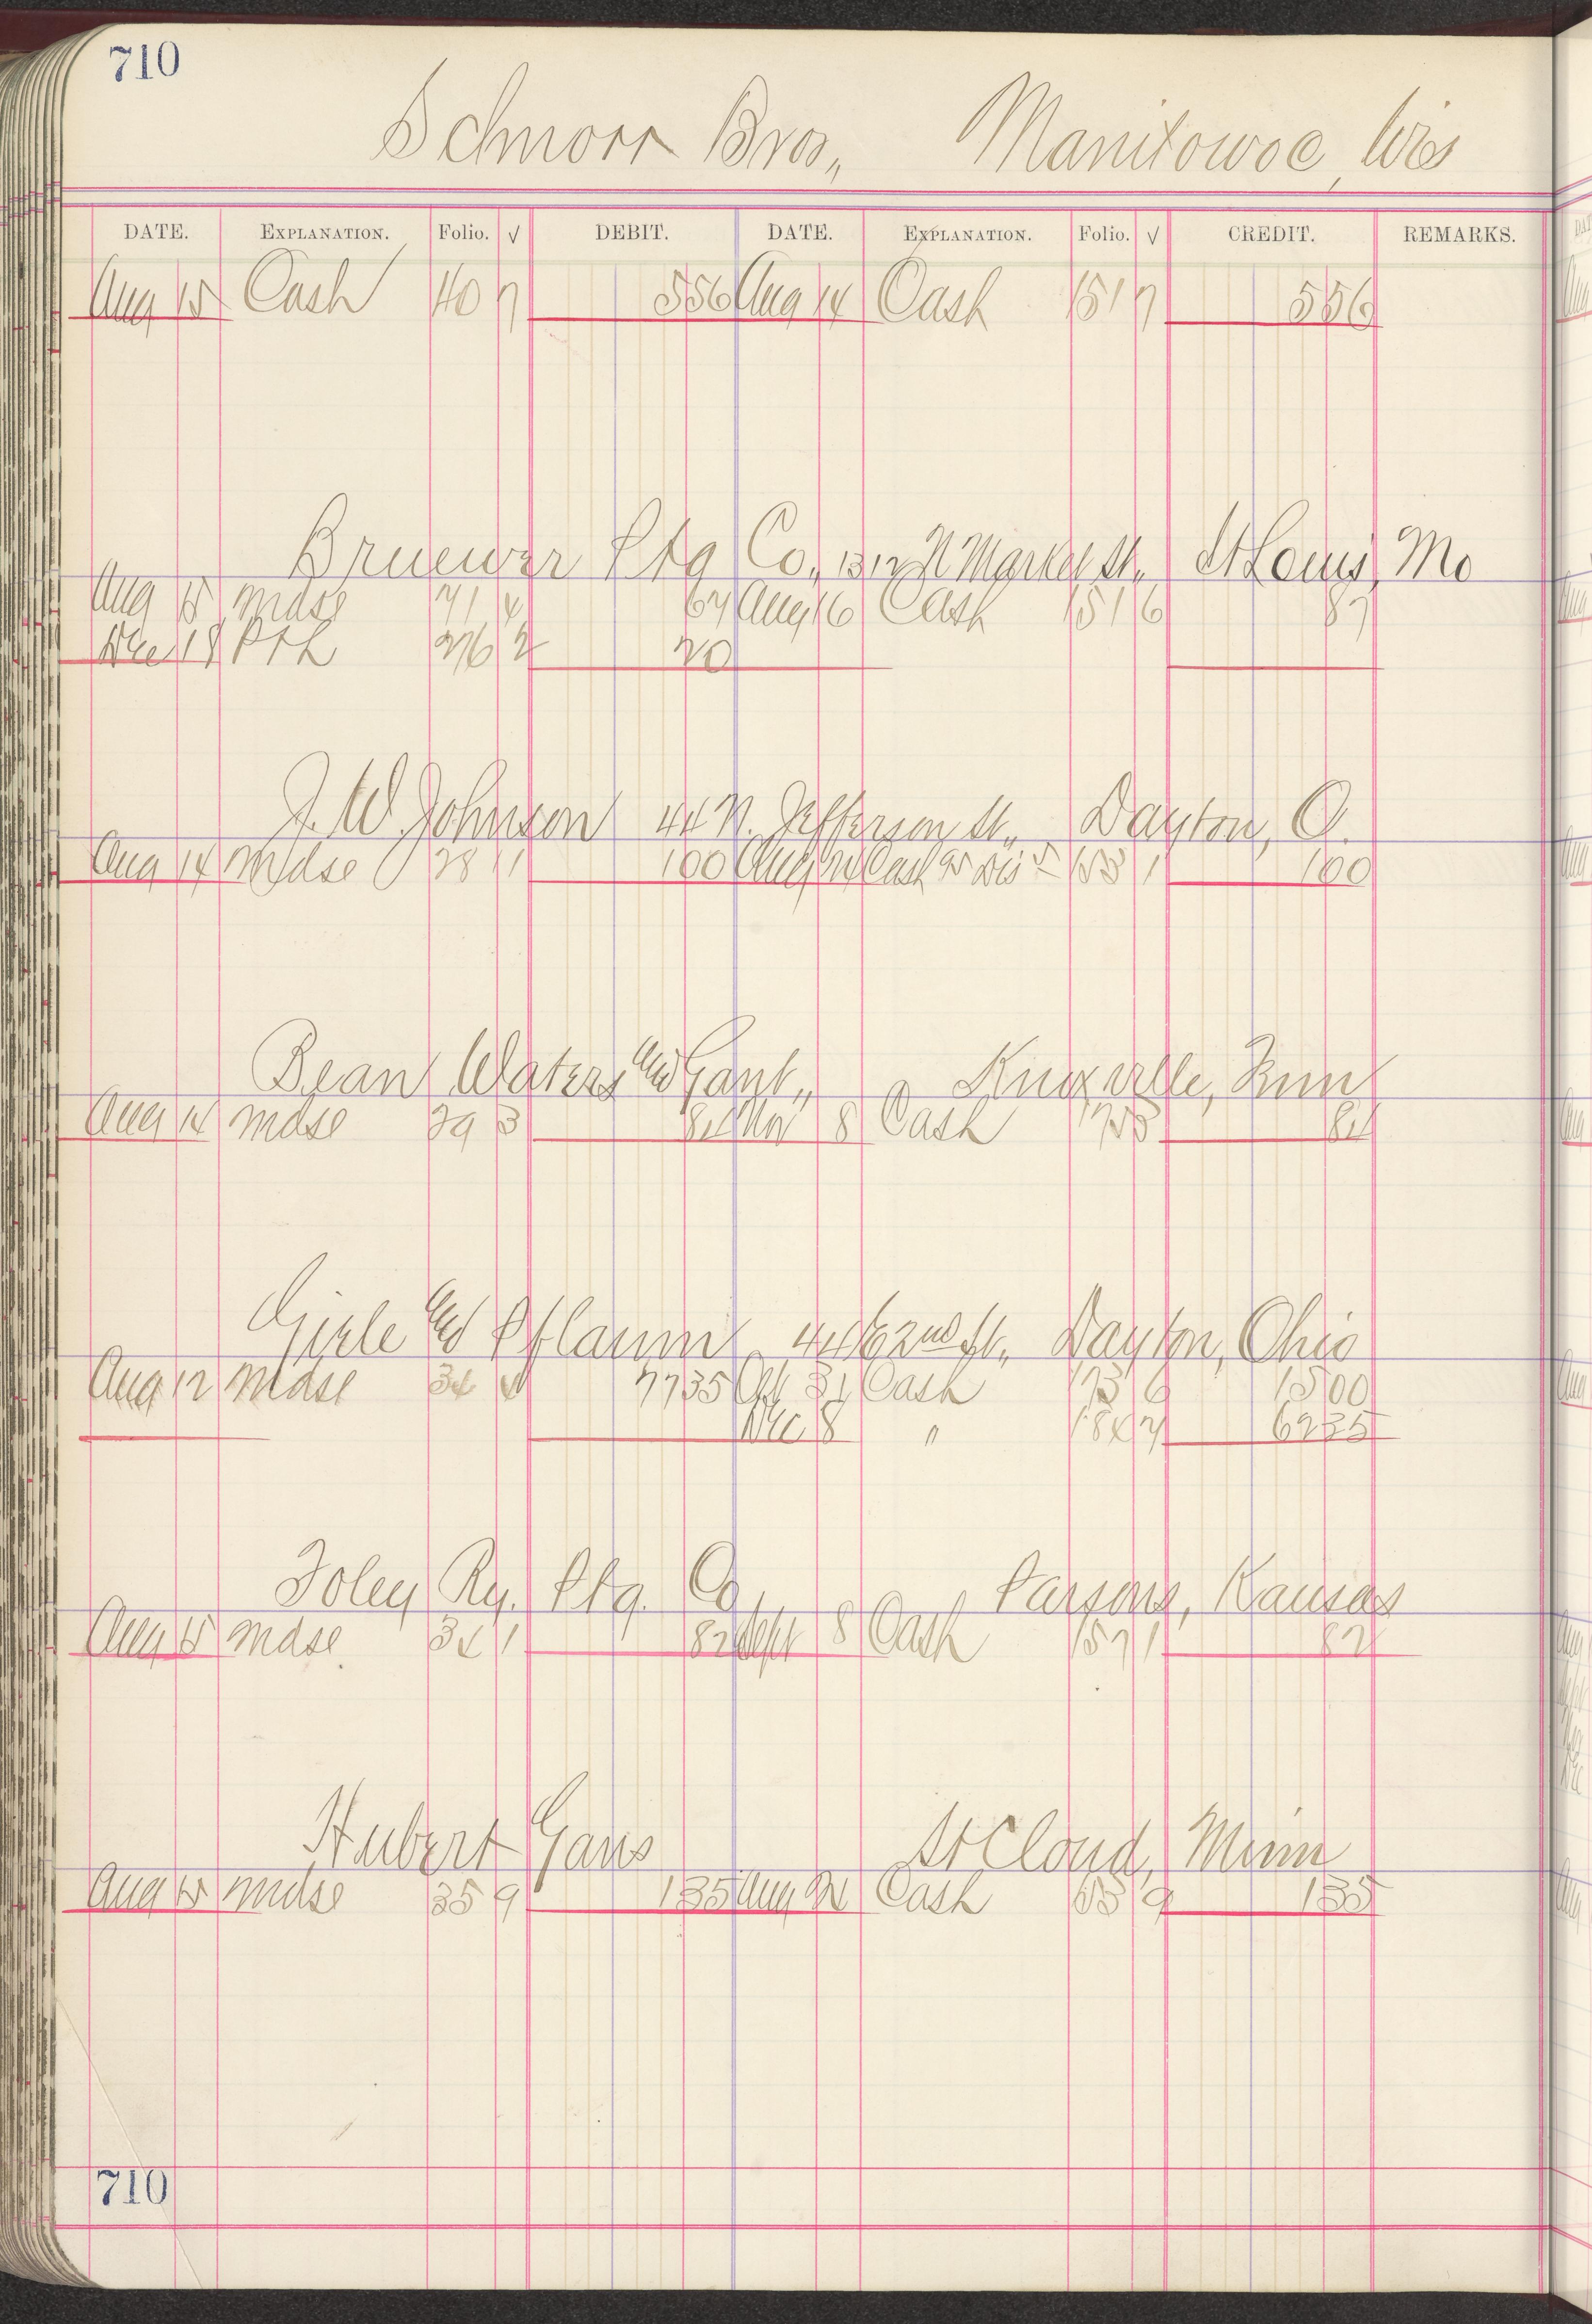 710
Schnorr Bros., Manitowoc, Wis
DATE. EXPLANATION. Folio. √ DEBIT. DATE. EXPLANATION. Folio. √ CREDIT. REMARKS.
Aug 15 Cash 40 7 556 Aug 14 Cash 151 7 556
Bruewer Ptg Co., 1312 N Market St., St Louis, Mo
Aug 15 Mdse 71 4 67 Aug 16 Cash 151 6 87
Dec 18 276 2 20
J. W. Johnson 44 N. Jefferson St., Dayton, O.
Aug 14 Mdse 28 1 100 Aug Cash 95 Dis 5 153 1 100
Bean Waters and Gant., Knoxville, Tenn
Aug 14 Mdse 29 3 84 Nov 8 Cash 175 84
and Pflaum 44 E 2nd St., Dayton, Ohio
Aug 12 Mdse 34 4 7735 Oct 31 Cash 173 6 1500
Dec 8 " 184 7 6235
Foley Ry. Ptg. Co Parsons, Kansas
Aug 15 Mdse 34 1 82 Sept 8 Cash 157 1 82
Hubert Gans St Cloud, Minn
Aug 15 Mdse 35 9 135 Aug Cash 153 9 135
710